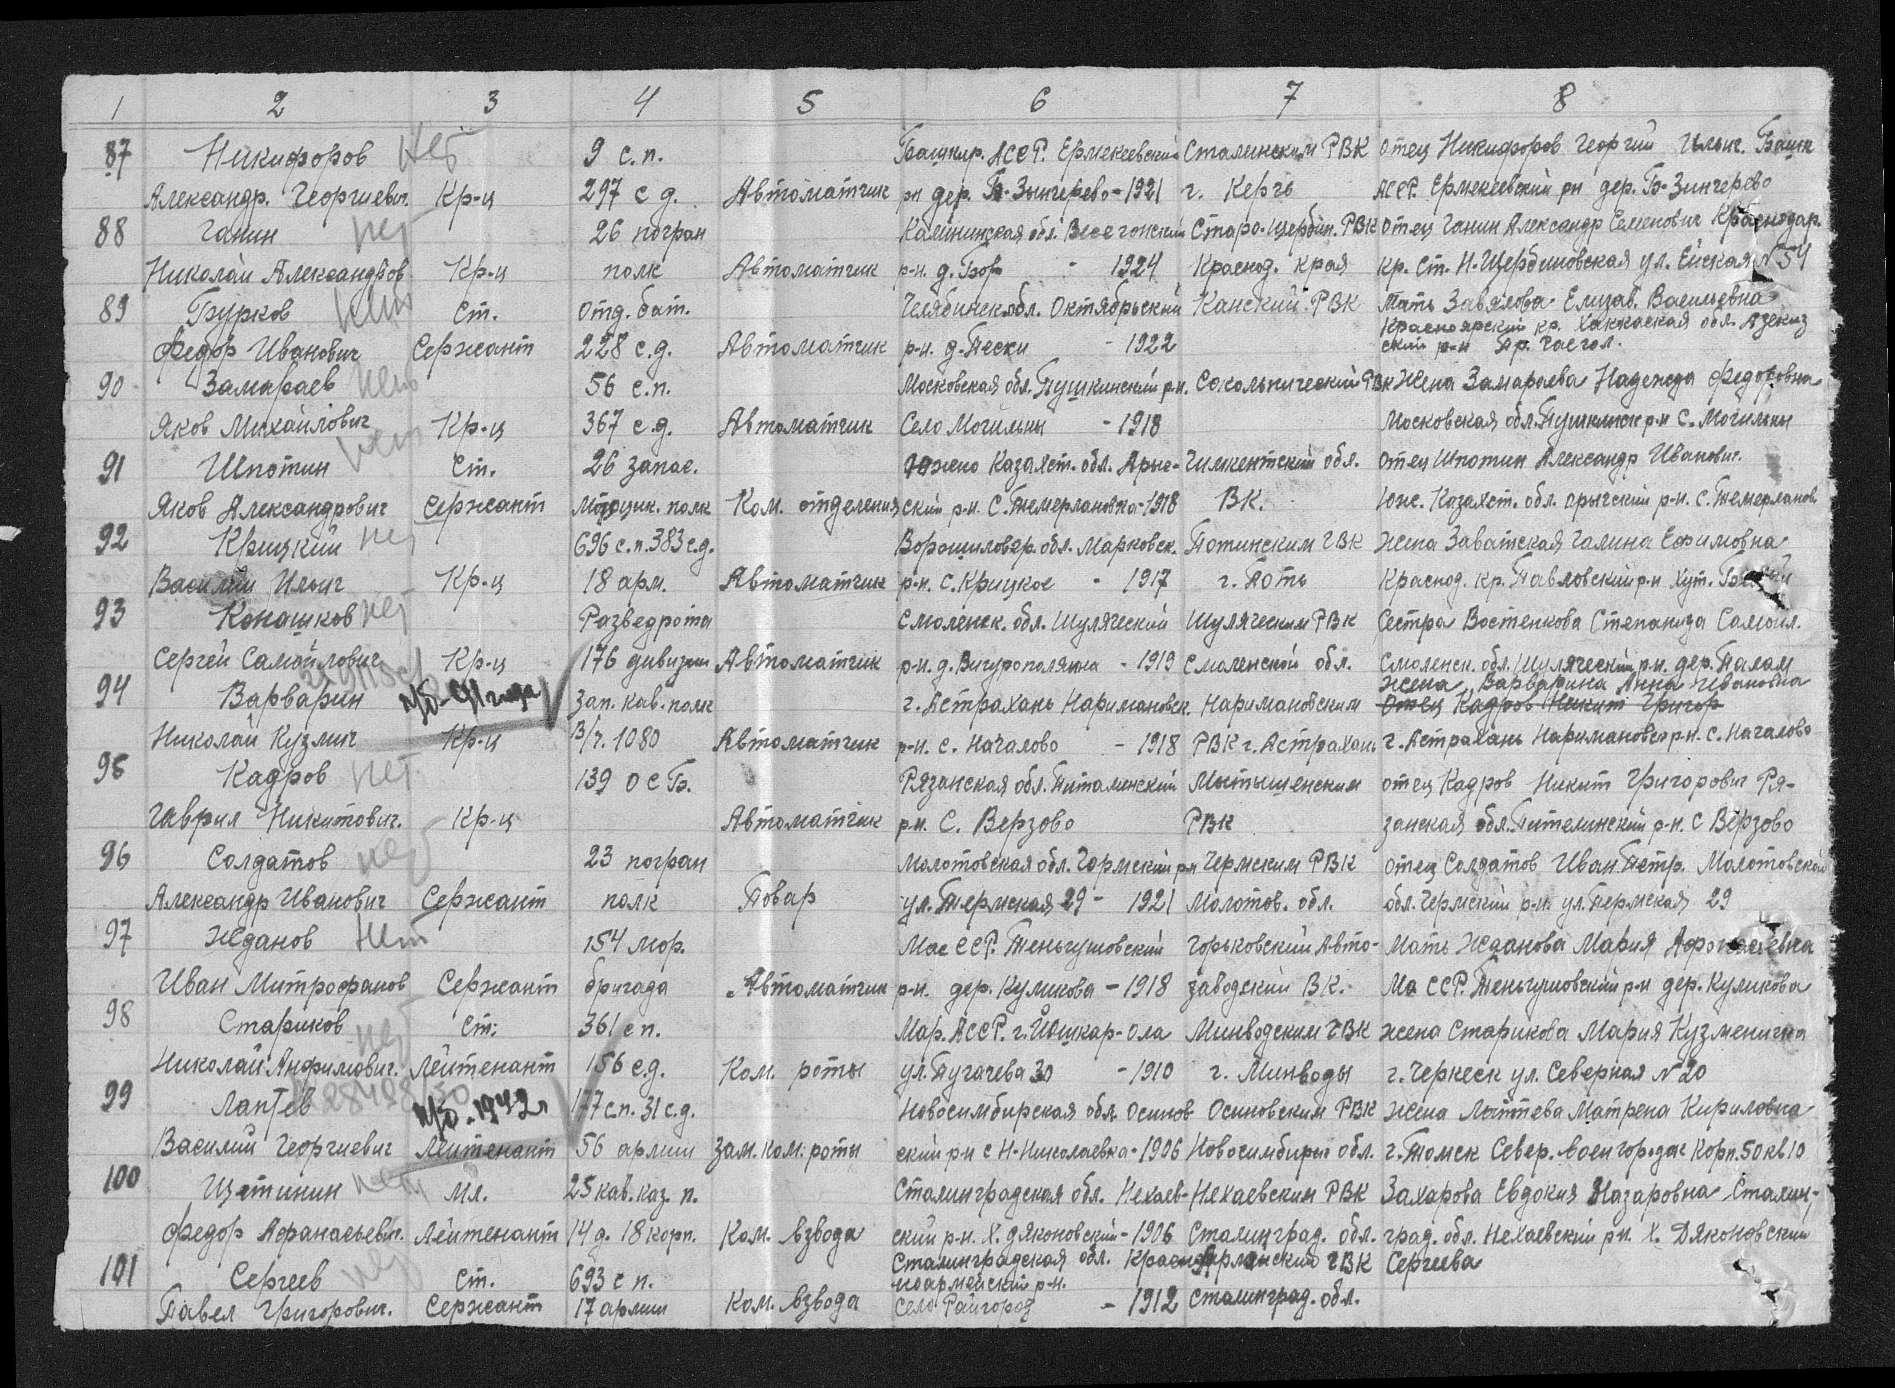 1 2 3 4 5 6 7 8
87 Никифоров нет 9 с.п. Башкир. АССР. Ермекеевский Сталинским РВК отец Никифоров Георгий Ильич. Башк
Александр. Георгиевич. Кр-ц 297 с д. Автоматчик рн дер. Б-Зингерево - 1921 г. Керчь АССР. Ермекеевский рн дер. Б-Зингерево
88 Ганин нет 26 погран Калининская обл. Весегонский Старо-щербин. РВК отец Ганин Александр Семенович Краснодар.
Николай Александров Кр-ц полк Автоматчик р-н. д. Бор - 1924 Краснод. края кр. ст. Н-Щербиновская ул. Ейская N 54
89 Бурков нет Ст. отд. бат. Челябинск обл. Октябрьский Канский РВК Мать Завялова Елизав. Васильевна
Красноярский кр. Хакасская обл.
Федор Иванович Сержант 228 с.д. Автоматчик р-н. д-Пески - 1922 ский р-н
90 Замараев нет 56 с.п. Московская обл. Пушкинский рн. Сокольнический РВК Жена Замараева Надежда Федоровна
Яков Михайлович Кр-ц 367 с.д. Автоматчик Село Могилны - 1918 Московская обл. Пушкинск р-н с. Могильны
91 Шпотин нет Ст. 26 запас. Южно Казахст. обл. Арыс- Чимкентский обл. отец Шпотин Александр Иванович.
Яков Александрович Сержант мотоцик. полк Ком. отделения ский р-н. С. Темерлановка - 1918 ВК. Юж. Казахст. обл. арысский р-н. с. Темерланов
92 Крицкий нет 696 с.п. 383 с.д. Ворошиловгр. обл. Марковск. Потинским ГВК жена Заватская Галина Ефимовна
Василий Ильич Кр-ц 18 арм. Автоматчик р-н. с. Крицкое - 1917 г. Поть Краснод. кр. Павловский р-н Хут.
93 Конашков нет Разведрота Смоленск. обл. Шуляческий Шуляческим РВК Сестра Востенкова Степанида Самойл.
Сергей Самойлович Кр-ц 176 дивизии Автоматчик р-н. д. - 1919 Смоленской обл. Смоленск. обл. Шуляческий рн. дер.
Жена Варварина Анна Ивановна
94 Варварин зап. кав. полк г. Астрахань Наримановск. Наримановским Отец Кадров Никит Григор
Николай Кузмич Кр-ц В/ч. 1080 Автоматчик р-н. с. Началово - 1918 РВК г. Астрахань г. Астрахань Наримановск р-н. с. Началово
95 Кадров нет 139 О С Б. Рязанская обл. Питалинский Мытыщенским отец Кадров Никит Григорович Ря-
Гаврил Никитович. Кр-ц Автоматчик р-н. С. Верзово РВК занская обл. Пителинский р-н. с Верзово
96 Солдатов нет 23 погран Молотовская обл. Чермский рн Чермским РВК отец Солдатов Иван Петр. Молотовской
Александр Иванович Сержант полк Повар ул. Пермская 29 - 1921 Молотов. обл. обл. Чермский р-н. ул. Пермская 29
97 Жданов Нет 154 мор. Мас ССР. Теньгушовский Горьковский Авто- Мать Жданова Мария
Иван Митрофанов Сержант бригада Автоматчик р-н. дер. Куликова - 1918 заводский ВК. Ма ССР. Теньгушовский р-н дер. Куликова
98 Стариков нет Ст. 361 с п. Мар. АССР. г. Йошкар-Ола Минводским ГВК жена Старикова Мария Кузменична
Николай Анфимович. Лейтенант 156 с.д. Ком. роты ул. Пугачева 30 - 1910 г. Минводы г. Черкеск ул. Северная N 20
99 Лаптев 1942 г 177 с.п. 31 с.д. Новосимбирская обл. Осинов Осиновским РВК Жена Лаптева Матрена Кириловна
Василий Георгиевич Лейтенант 56 армии Зам. ком. роты ский р-н с Н-Николаевка - 1906 Новосимбирск обл. г. Томск Север. военгородок Корп. 50 кв 10
100 Щетинин нет Мл. 25 кав. каз. п. Сталинградская обл. Нехаев- Нехаевским РВК Захарова Евдокия Назаровна Сталин-
Федор Афанасьевич. Лейтенант 14 д. 18 корп. Ком. взвода ский р-н. Х. дяконовский - 1906 Сталинград. обл. град. обл. Нехаевский рн. Х. Дяконовский
101 Сергеев нет Ст. 693 с п. Сталинградская обл. Красноарменский ГВК Сергеева
ноармейский р-н.
Павел Григорович. Сержант 17 армии Ком. взвода Село Райгород - 1912 Сталинград. обл.